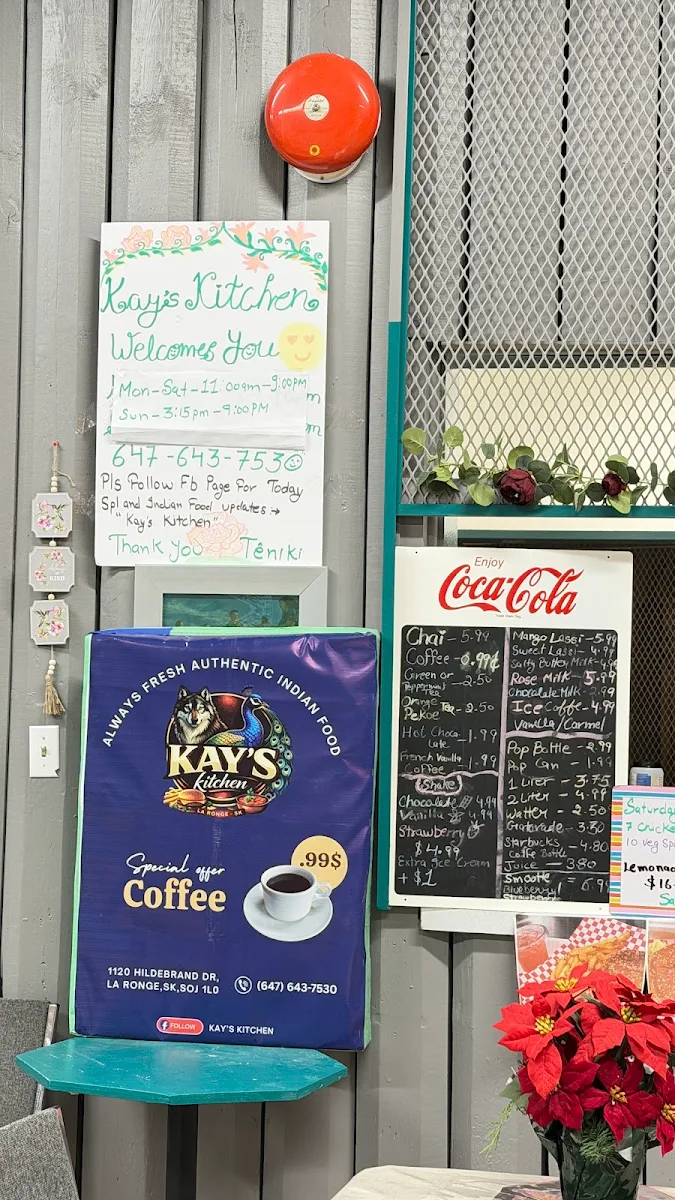 Kay's Kitchen
Welcomes You
Mon-Sat-11:00am-9:00PM
Sun-3:15pm-9:00PM
647-643-7530
Pls Follow Fb Page For Today
Spl and Indian Food updates →
"Kay's Kitchen"
Thank you Teniki
KIND
ALWAYS FRESH AUTHENTIC INDIAN FOOD
KAY'S
kitchen
LA RONGE - SK
Special offer
Coffee
.99$
1120 HILDEBRAND DR,
LA RONGE,SK,S0J 1L0
(647) 643-7530
FOLLOW KAY'S KITCHEN
Enjoy
Coca-Cola
Chai - 5.99
Coffee - 0.99¢
Green or - 2.50
Peppermint
Tea
Orange Tea - 2.50
Pekoe
Hot Choco - 1.99
late
French Vanilla - 1.99
Coffee
Shake
Chocolate 4.99
Vanilla 4.99
Strawberry
$4.99
Extra Ice Cream
+ $1
Mango Lassi - 5.99
Sweet Lassi - 4.99
Salty Butter Milk - 4.99
Rose Milk - 5.99
Chocolate Milk - 2.99
Ice Coffe - 4.99
Vanilla/Carmel
Pop Bottle - 2.99
Pop Can - 1.99
1 Liter - 3.75
2 Liter - 4.99
Watter - 2.50
Gatorade - 3.50
Starbucks - 4.80
Coffe Bottle
Juice - 3.80
Smoote = 6.99
Blueberry
Strawberry
Saturda
7 Chicke
10 veg Sp
Lemonad
$16
Sa